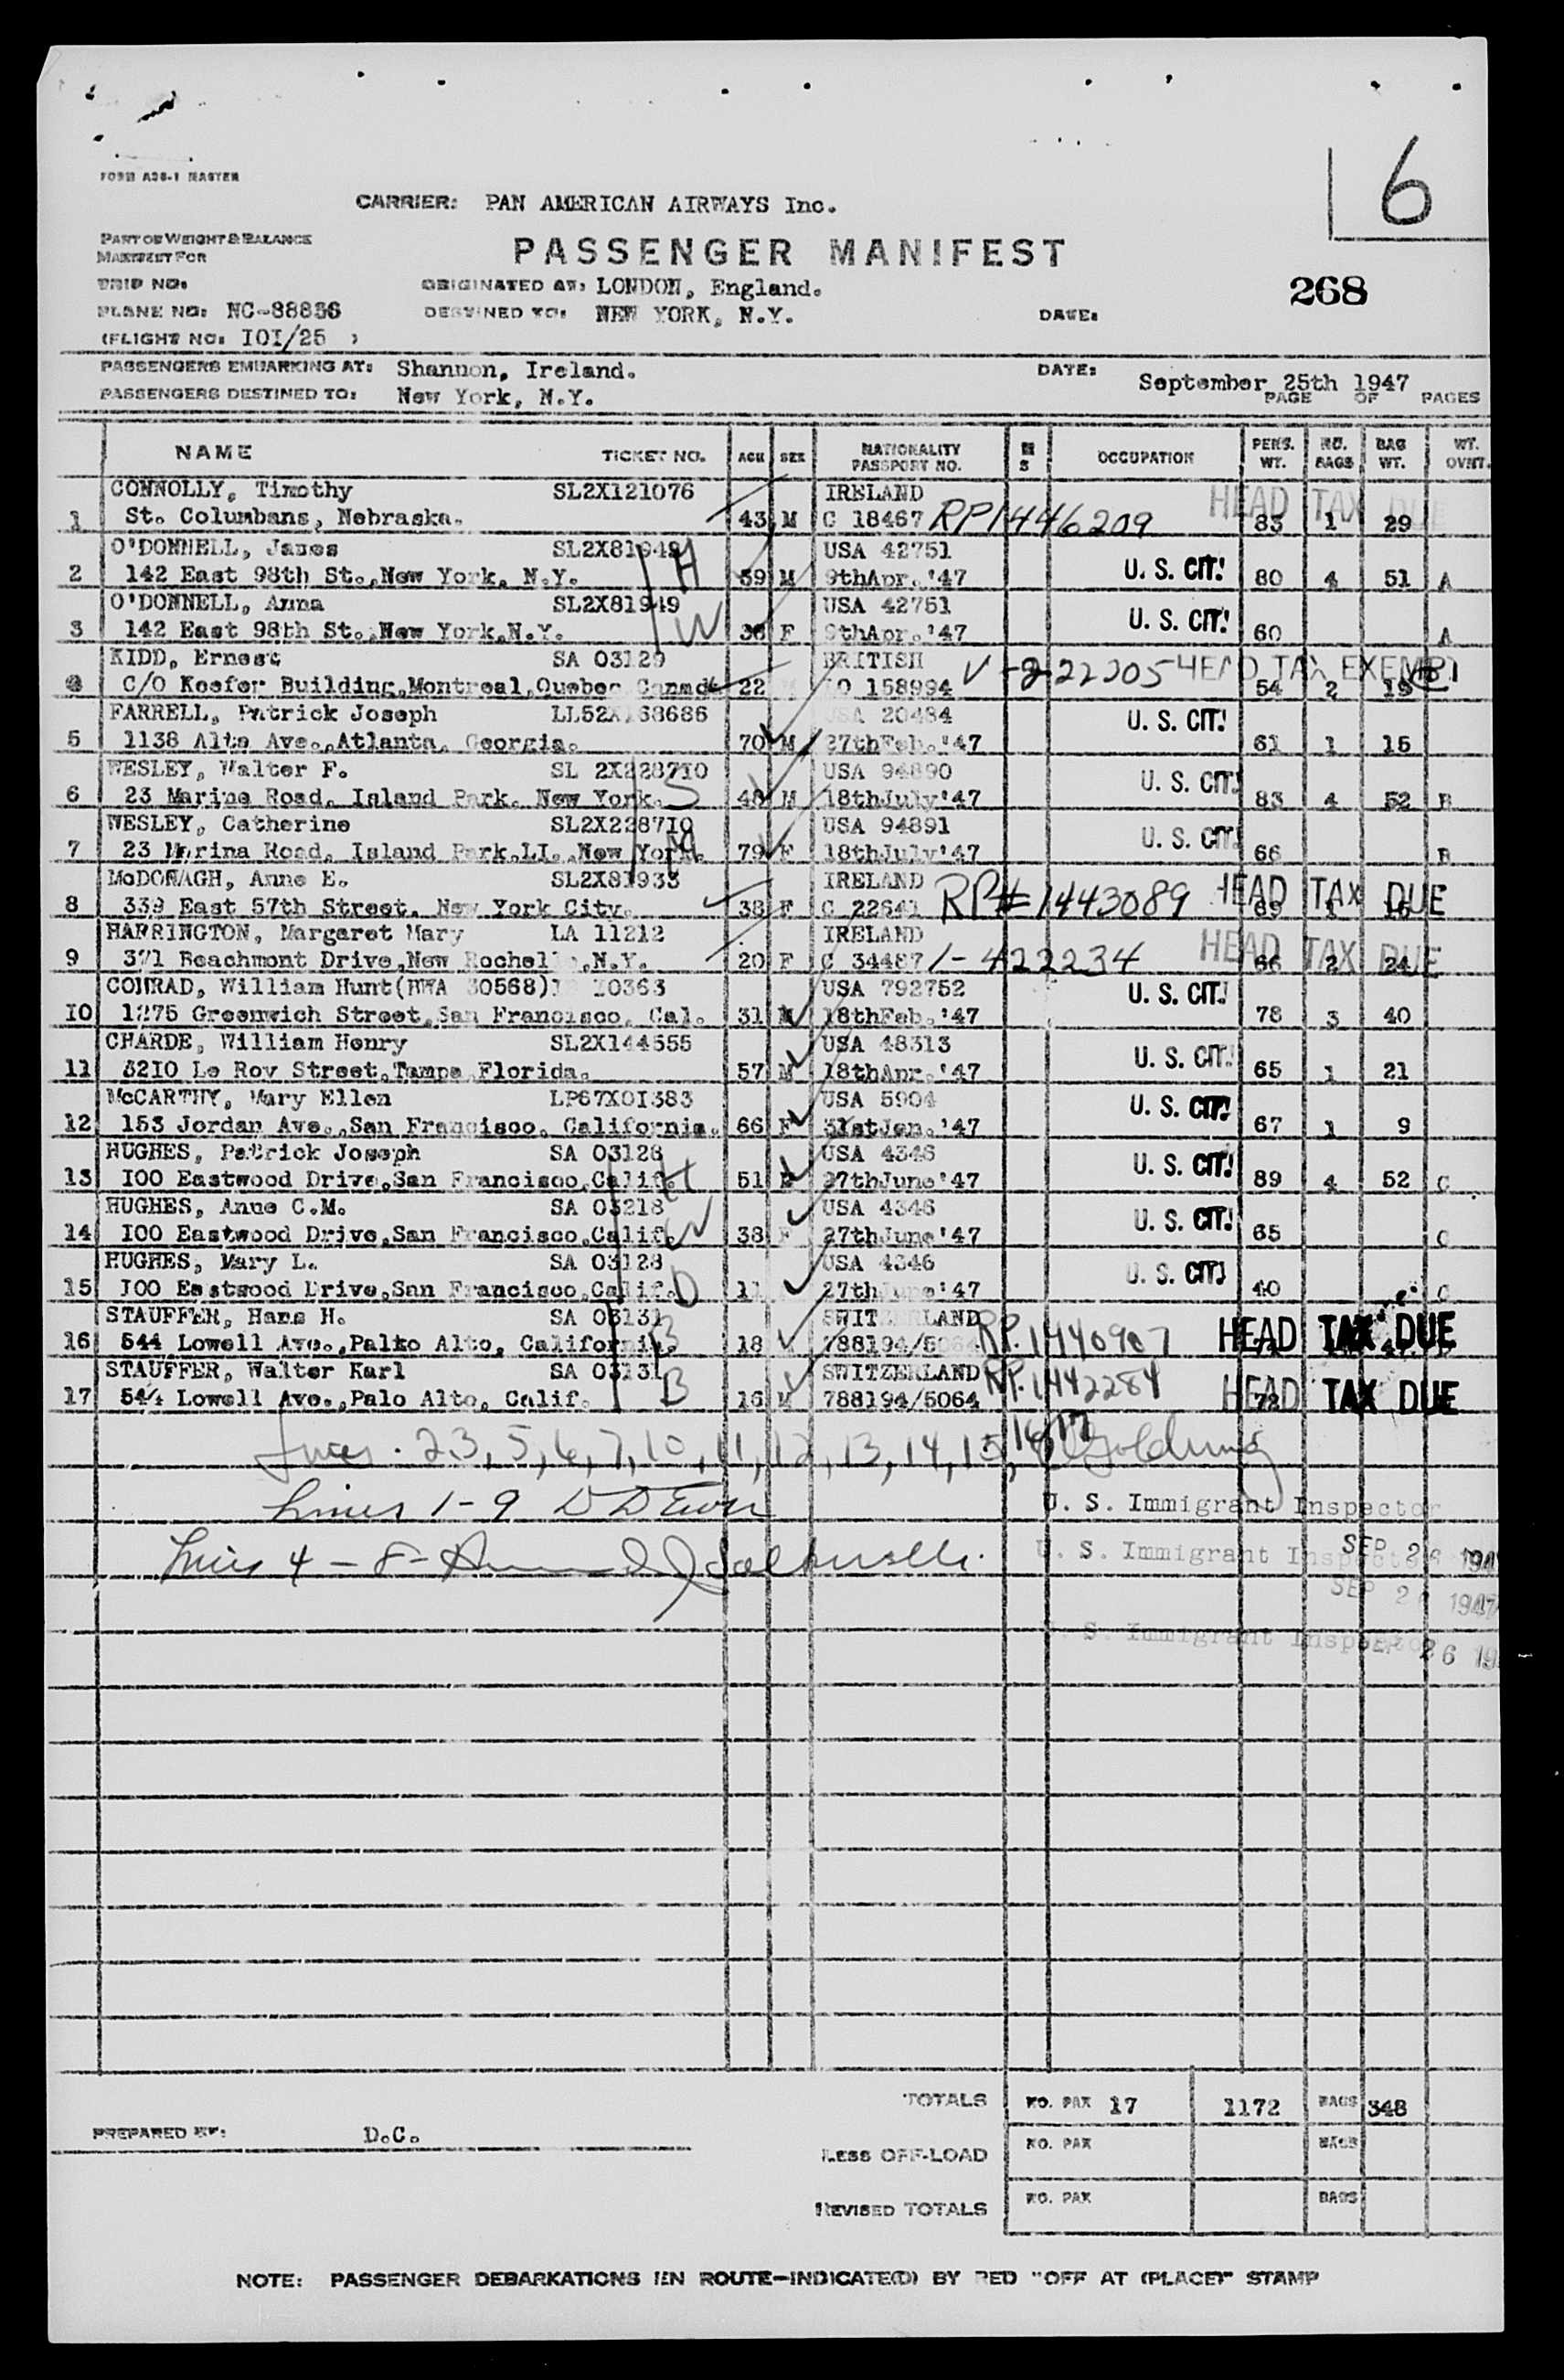 6
FORM A26-1 MASTER
CARRIER: PAN AMERICAN AIRWAYS Inc.
PART OF WEIGHT & BALANCE
MANIFEST FOR
PASSENGER MANIFEST
TRIP NO:
ORIGINATED AT: LONDON, England.
268
PLANE NO: NC-88856
DESTINED TO: NEW YORK, N.Y.
DATE:
(FLIGHT NO: IOI/25 )
PASSENGERS EMBARKING AT: Shannon, Ireland.
DATE: September 25th 1947
PASSENGERS DESTINED TO: New York, N.Y.
PAGE OF PAGES
NAME TICKET NO. AGE SEX NATIONALITY PASSPORT NO. M S OCCUPATION PERS. WT. NO. BAGS BAG WT. WT. OVNT.
CONNOLLY, Timothy SL2X121076 IRELAND HEAD TAX DUE
1 St. Columbans, Nebraska. 43 M C 18467 RP1446209 83 1 29
O'DONNELL, James SL2X81949 H USA 42751
2 142 East 98th St.,New York, N.Y. 59 M 9thApr.'47 U. S. CIT. 80 4 51 A
O'DONNELL, Anna SL2X81949 W USA 42751
3 142 East 98th St.,New York,N.Y. F 9thApr.'47 U. S. CIT. 60 A
KIDD, Ernest SA 03129 BRITISH HEAD TAX EXEMPT
4 C/O Keefer Building,Montreal,Quebec Canada 22 158994 54 2 19
FARRELL, Patrick Joseph USA 20484
5 1138 Alta Ave.,Atlanta, Georgia. 70 M 27thFeb.'47 U. S. CIT. 61 1 15
WESLEY, Walter F. SL 2X2287I0 S USA 94890
6 23 Marine Road, Island Park, New York. 48 M 18thJuly'47 U. S. CIT. 83 4 52 B
WESLEY, Catherine SL2X2287I0 M USA 94891
7 23 Marina Road, Island Park,LI.,New York. 79 F 18thJuly'47 U. S. CIT. 66 B
McDONAGH, Anne E. SL2X81933 IRELAND
8 339 East 57th Street, New York City. 38 F C 22641 RP#1443089 HEAD TAX DUE
HARRINGTON, Margaret Mary LA 11212 IRELAND
9 371 Beachmont Drive,New Rochelle,N.Y. 20 F C 34487 1-422234 HEAD TAX DUE 66 2 24
CONRAD, William Hunt(RWA 30568) I0363 USA 792752
I0 1275 Greenwich Street,San Francisco, Cal. 31 M 18thFeb.'47 U. S. CIT. 78 3 40
CHARDE, William Henry SL2X144555 USA 48313
11 3210 Le Roy Street,Tampa Florida. 57 M 18thApr.'47 U. S. CIT. 65 1 21
McCARTHY, Mary Ellen LP67X0I383 USA 5904
12 153 Jordan Ave.,San Francisco, California. 66 F 31stJan.'47 U. S. CIT. 67 1 9
HUGHES, Patrick Joseph SA 03128 H USA 4346
13 I00 Eastwood Drive,San Francisco,Calif. 51 M 27thJune'47 U. S. CIT. 89 4 52 C
HUGHES, Anne C.M. SA 03218 W USA 4346
14 I00 Eastwood Drive,San Francisco,Calif. 38 F 27thJune'47 U. S. CIT. 65 C
HUGHES, Mary L. SA 03128 D USA 4346
15 I00 Eastwood Drive,San Francisco,Calif. 11 27thJune'47 U. S. CIT. 40 C
STAUFFER, Hans H. SA 03131 B SWITZERLAND
16 544 Lowell Ave.,Palto Alto, California. 18 788194/5064 RP.1440907 HEAD TAX DUE
STAUFFER, Walter Karl SA 03131 B SWITZERLAND
17 544 Lowell Ave.,Palo Alto, Calif. 16 M 788194/5064 RP.1442284 72 HEAD TAX DUE
Lines. 23, 5, 6, 7, 10, 11, 12, 13, 14, 15, 16, 17
Lines 1-9
U. S. Immigrant Inspector
Lines 4 - 8 -
U. S. Immigrant Inspector SEP 26 1947
SEP 26 1947
U. S. Immigrant Inspector SEP 26 19
TOTALS NO. PAX 17 1172 BAGS 348
PREPARED BY: D.C.
LESS OFF-LOAD NO. PAX BAGS
REVISED TOTALS NO. PAX BAGS
NOTE: PASSENGER DEBARKATIONS EN ROUTE-INDICATE(D) BY RED "OFF AT (PLACE)" STAMP